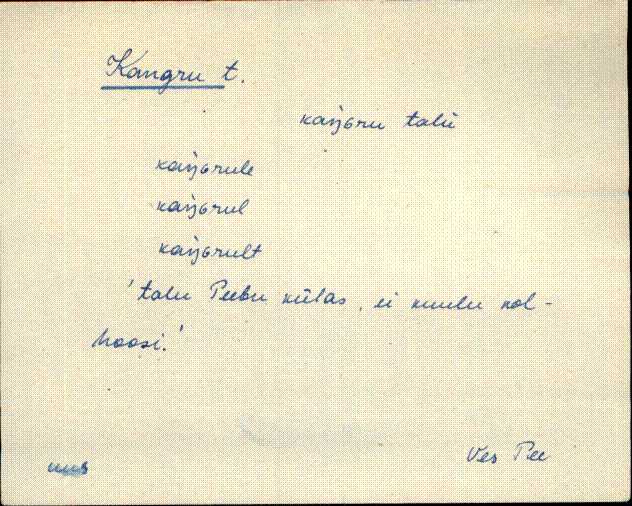 Kangru t.
kaŋɢru talu
kaŋɢrule
kaŋɢrul
kaŋɢrult
'talu Peebu külas, ei kuulu kol-
hoosi.'
uus
Ves Pee